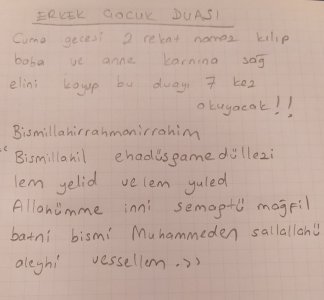 ERKEK ÇOCUK DUASI
Cuma gecesi 2 rekat namaz kılıp
baba ve anne karnına sağ
elini koyup bu duayı 7 kez
okuyacak!!
Bismillahirrahmanirrahim
" Bismillahil ehadüsgamedüllezi
lem yelid ve lem yuled
Allahümme inni semaptü mağfil
batni bismi Muhammeden sallallahü
aleyhi vessellem .>>